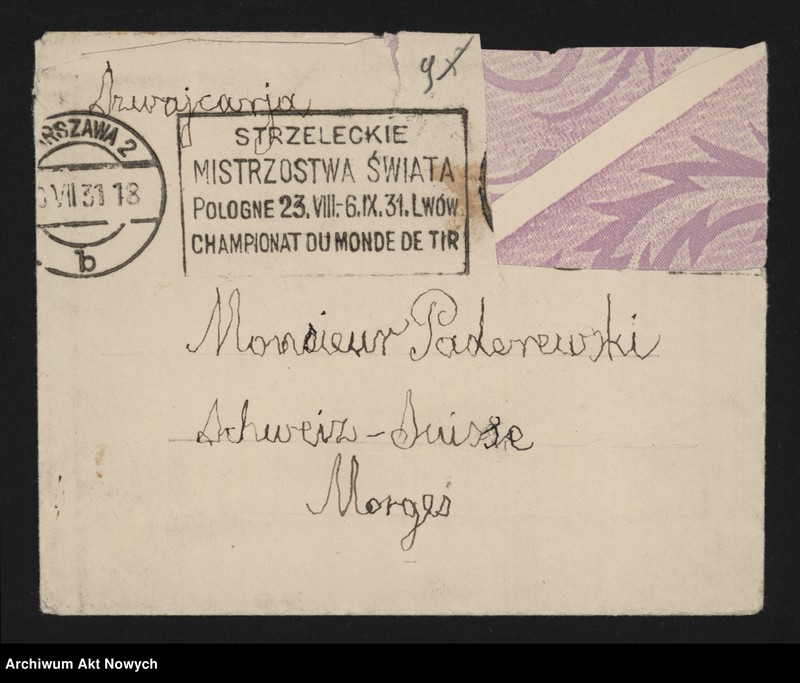 9x
Szwajcarja
WARSZAWA 2
VII 31 18
b
STRZELECKIE
MISTRZOSTWA ŚWIATA
POLOGNE 23.VIII.-6.IX.31. LWÓW.
CHAMPIONAT DU MONDE DE TIR
Monsieur Paderewski
Schweiz - Suisse
Morges
Archiwum Akt Nowych